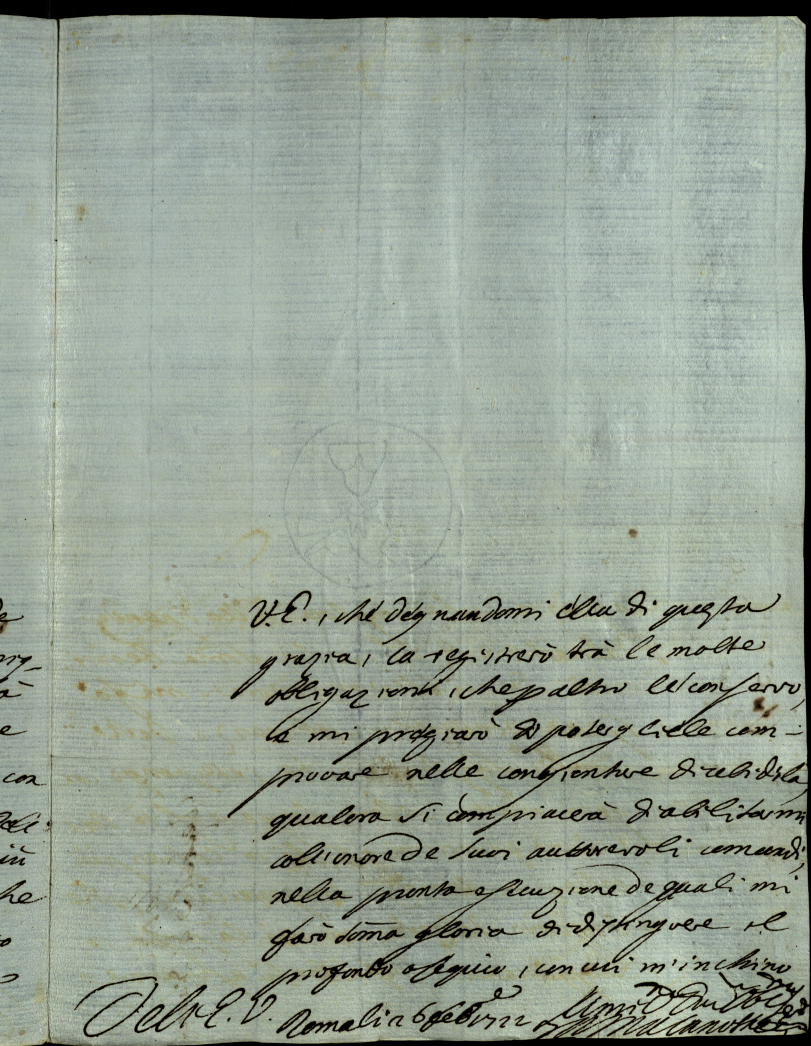 V.E., che degnandomi ella di questa
grazia, la registrerò trà le molte
obbligazioni, che p altro le conservo,
e mi pregiarò di poterglielle com-
provare nelle congionture di
qualora si compiacerà d'abilitarmi
coll'onore de suoi autorevoli comandi,
nella pronta esecuzione de quali mi
farò soma gloria di distinguere il
profondo ossequio, con cui m'inchino
Dell'E.V.
Roma li 26 feb 1722
con
he